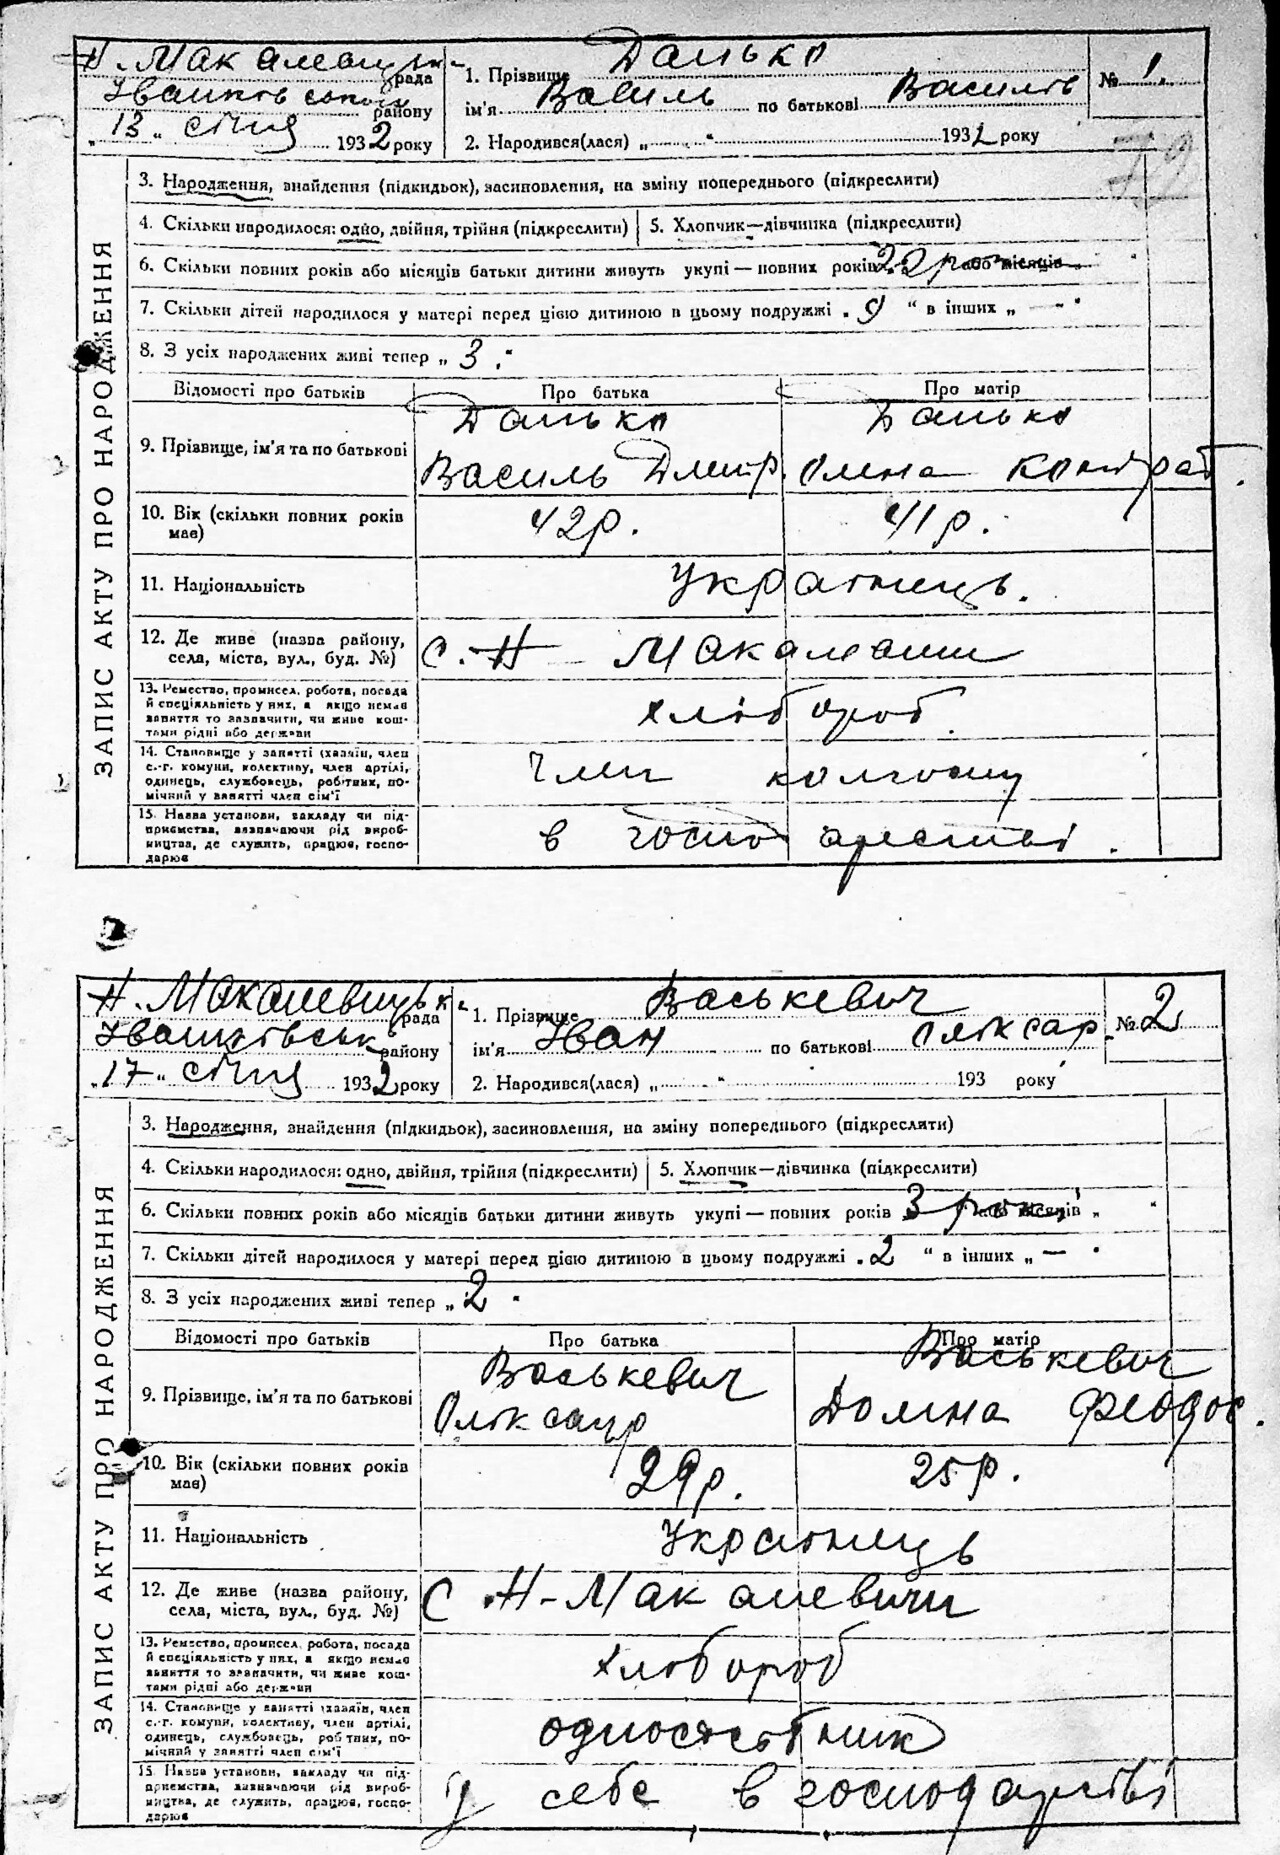 Н. Макалевицьк рада
Іванківського району
"13" січня 1932 року
1. Прізвище Данько
ім'я Василь по батькові Василів
2. Народився(лася) „ " 1932 року
№ 1.
72
ЗАПИС АКТУ ПРО НАРОДЖЕННЯ
3. Народження, знайдення (підкидьок), засиновлення, на зміну попереднього (підкреслити)
4. Скільки народилося: одно, двійня, трійня (підкреслити) 5. Хлопчик—дівчинка (підкреслити)
6. Скільки повних років або місяців батьки дитини живуть укупі — повних років 22 р або місяців „ "
7. Скільки дітей народилося у матері перед цією дитиною в цьому подружжі „ 9 " в інших „ — "
8. З усіх народжених живі тепер „ 3 "
Відомості про батьків Про батька Про матір
9. Прізвище, ім'я та по батькові
Данько Данько
Василь Дмитр. Олена Кондрат.
10. Вік (скільки повних років має) 42р. 41р.
11. Національність Українець.
12. Де живе (назва району, села, міста, вул., буд. №) с. Н Макалевичи
13. Ремество, промисел, робота, посада й спеціяльність у них, а якщо немає заняття то зазначити, чи живе коштами рідні або держави хлібороб
14. Становище у занятті (хазяїн, член с.-г. комуни, колективу, член артілі, одинець, службовець, робітник, помічний у занятті член сім'ї член колгоспу
15. Назва установи, закладу чи підприємства, зазначаючи рід виробництва, де служить, працює, господарює в господарстві.
Н. Макалевицьк. рада
Іванківськ району
"17" січня 1932 року
1. Прізвище Васькевич
ім'я Іван по батькові Олександр.
2. Народився(лася) „ " 193 року
№ 2
ЗАПИС АКТУ ПРО НАРОДЖЕННЯ
3. Народження, знайдення (підкидьок), засиновлення, на зміну попереднього (підкреслити)
4. Скільки народилося: одно, двійня, трійня (підкреслити) 5. Хлопчик—дівчинка (підкреслити)
6. Скільки повних років або місяців батьки дитини живуть укупі — повних років 3 роки або місяців „ "
7. Скільки дітей народилося у матері перед цією дитиною в цьому подружжі „ 2 " в інших „ — "
8. З усіх народжених живі тепер „ 2 "
Відомості про батьків Про батька Про матір
9. Прізвище, ім'я та по батькові
Васькевич Васькевич
Олександр Домна Феодос.
10. Вік (скільки повних років має) 29р. 25р.
11. Національність Українець
12. Де живе (назва району, села, міста, вул., буд. №) с. Н-Макалевичи
13. Ремество, промисел, робота, посада й спеціяльність у них, а якщо немає заняття то зазначити, чи живе коштами рідні або держави хлібороб
14. Становище у занятті (хазяїн, член с.-г. комуни, колективу, член артілі, одинець, службовець, робітник, помічний у занятті член сім'ї одноосібник
15. Назва установи, закладу чи підприємства, зазначаючи рід виробництва, де служить, працює, господарює у себе в господарстві